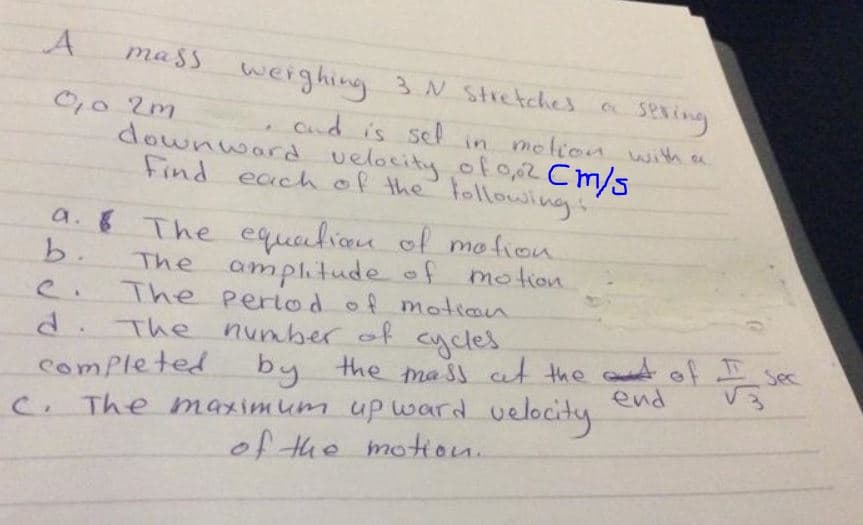 A mass weighing 3 N stretches a spring
0,02m, and is set in motion with a
downward velocity of 0,02 Cm/s
Find each of the following:
a. The equation of motion
b. The amplitude of motion
c. The period of motion
d. The number of cycles
completed by the mass at the end of π/√3 sec
c. The maximum upward velocity
of the motion.